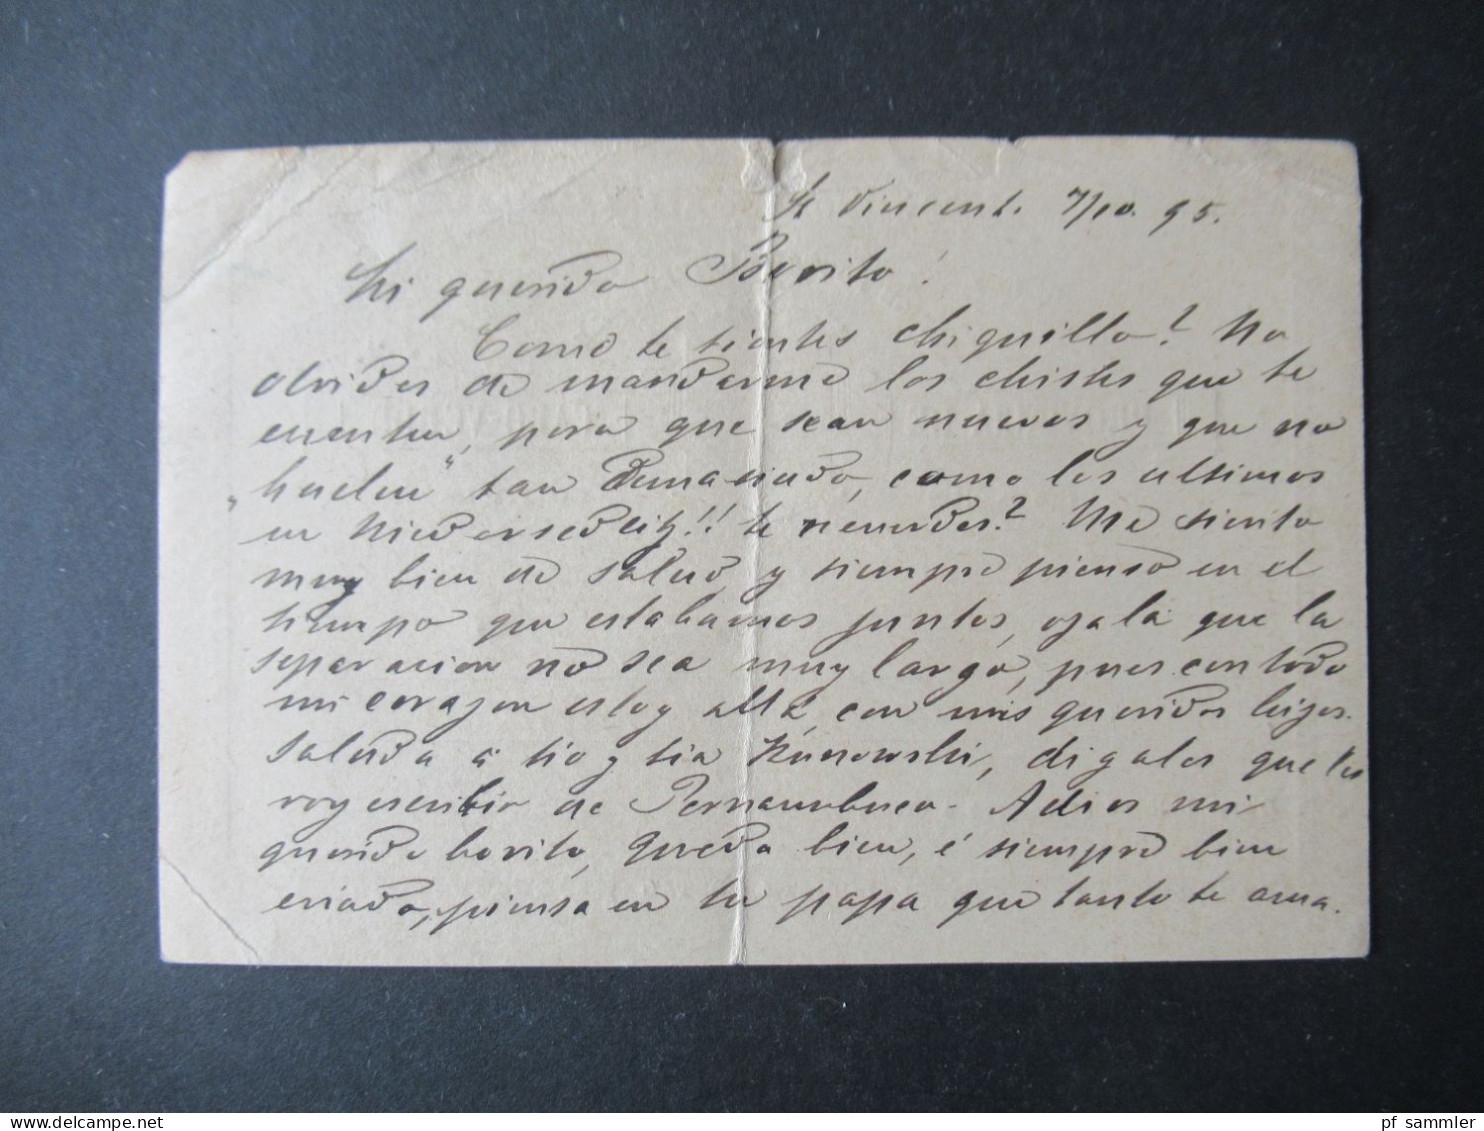 St Vincent. 7/10. 95.
Mi querido Borito!
Como te sientes chiquillo? No
olvides de mandarme los chistes que te
cuentan, para que sean nuevos y que no
„huelen" tan demasiado, como los ultimos
en Niedersedlitz!! te recuerdas? Me siento
muy bien de salud, y siempre pienso en el
tiempo que estabamos juntos, ojalá que la
separacion no sea muy larga, pues con todo
mi corazon estoy allá, con mis queridos hijos.
Saluda á tio y tia Kunowski, digales que les
voy escribir de Pernambuco. Adios mi
querido borito, queda bien, é siempre bien
criado, piensa en tu papa que tanto te ama.
pf sammler